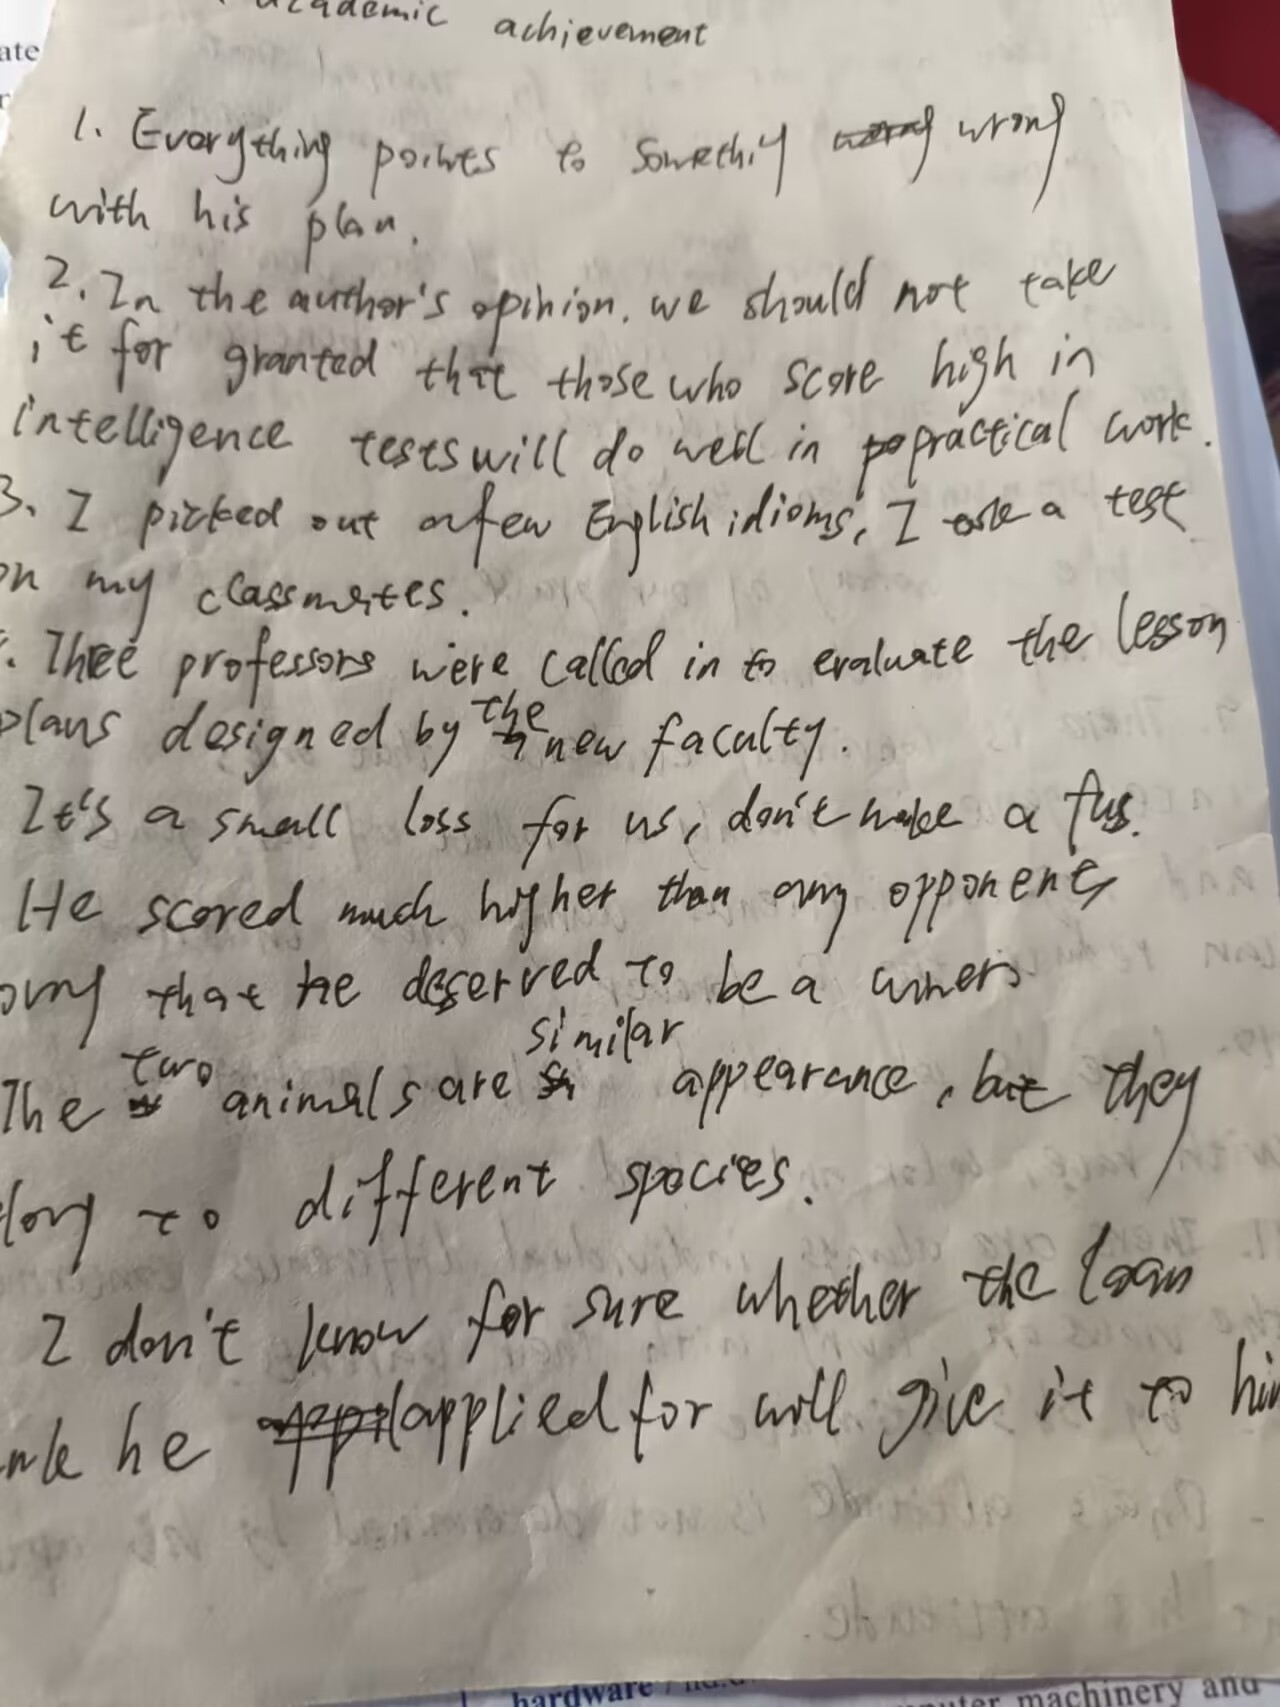 academic achievement
1. Everything points to somethig wrong
with his plan.
2. In the author's opinion, we should not take
it for granted that those who score high in
intelligence tests will do well in practical work.
3. I picked out a few English idioms, I a test
on my classmates.
Thee professors were called in to evaluate the lesson
plans designed by the new faculty.
It's a small loss for us, don't make a fus.
He scored much higher than any opponents
that he deserved to be a
The two animals are similar appearance, but they
to different species.
I don't know for sure whether the loan
he applied for will give it to
hardware /
machinery and